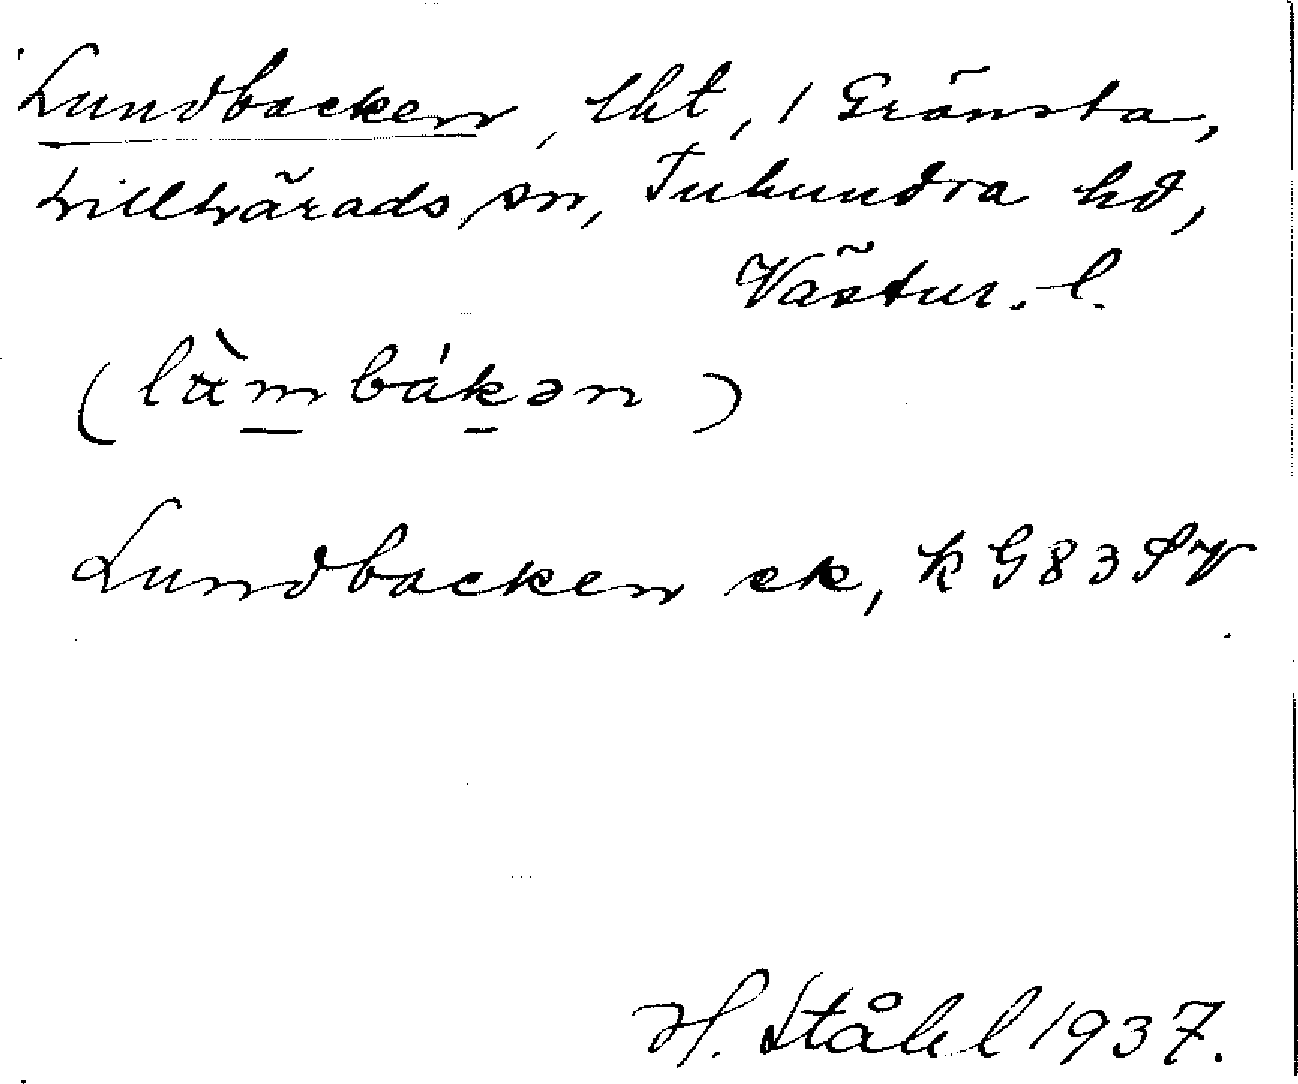 Lundbacken, lht, / Gränsta,
Lillhärads sn, Tuhundra hd,
Västm. l.
(làmbákən)
Lundbacken ek, k G 83 SV
H. Ståhl 1937.